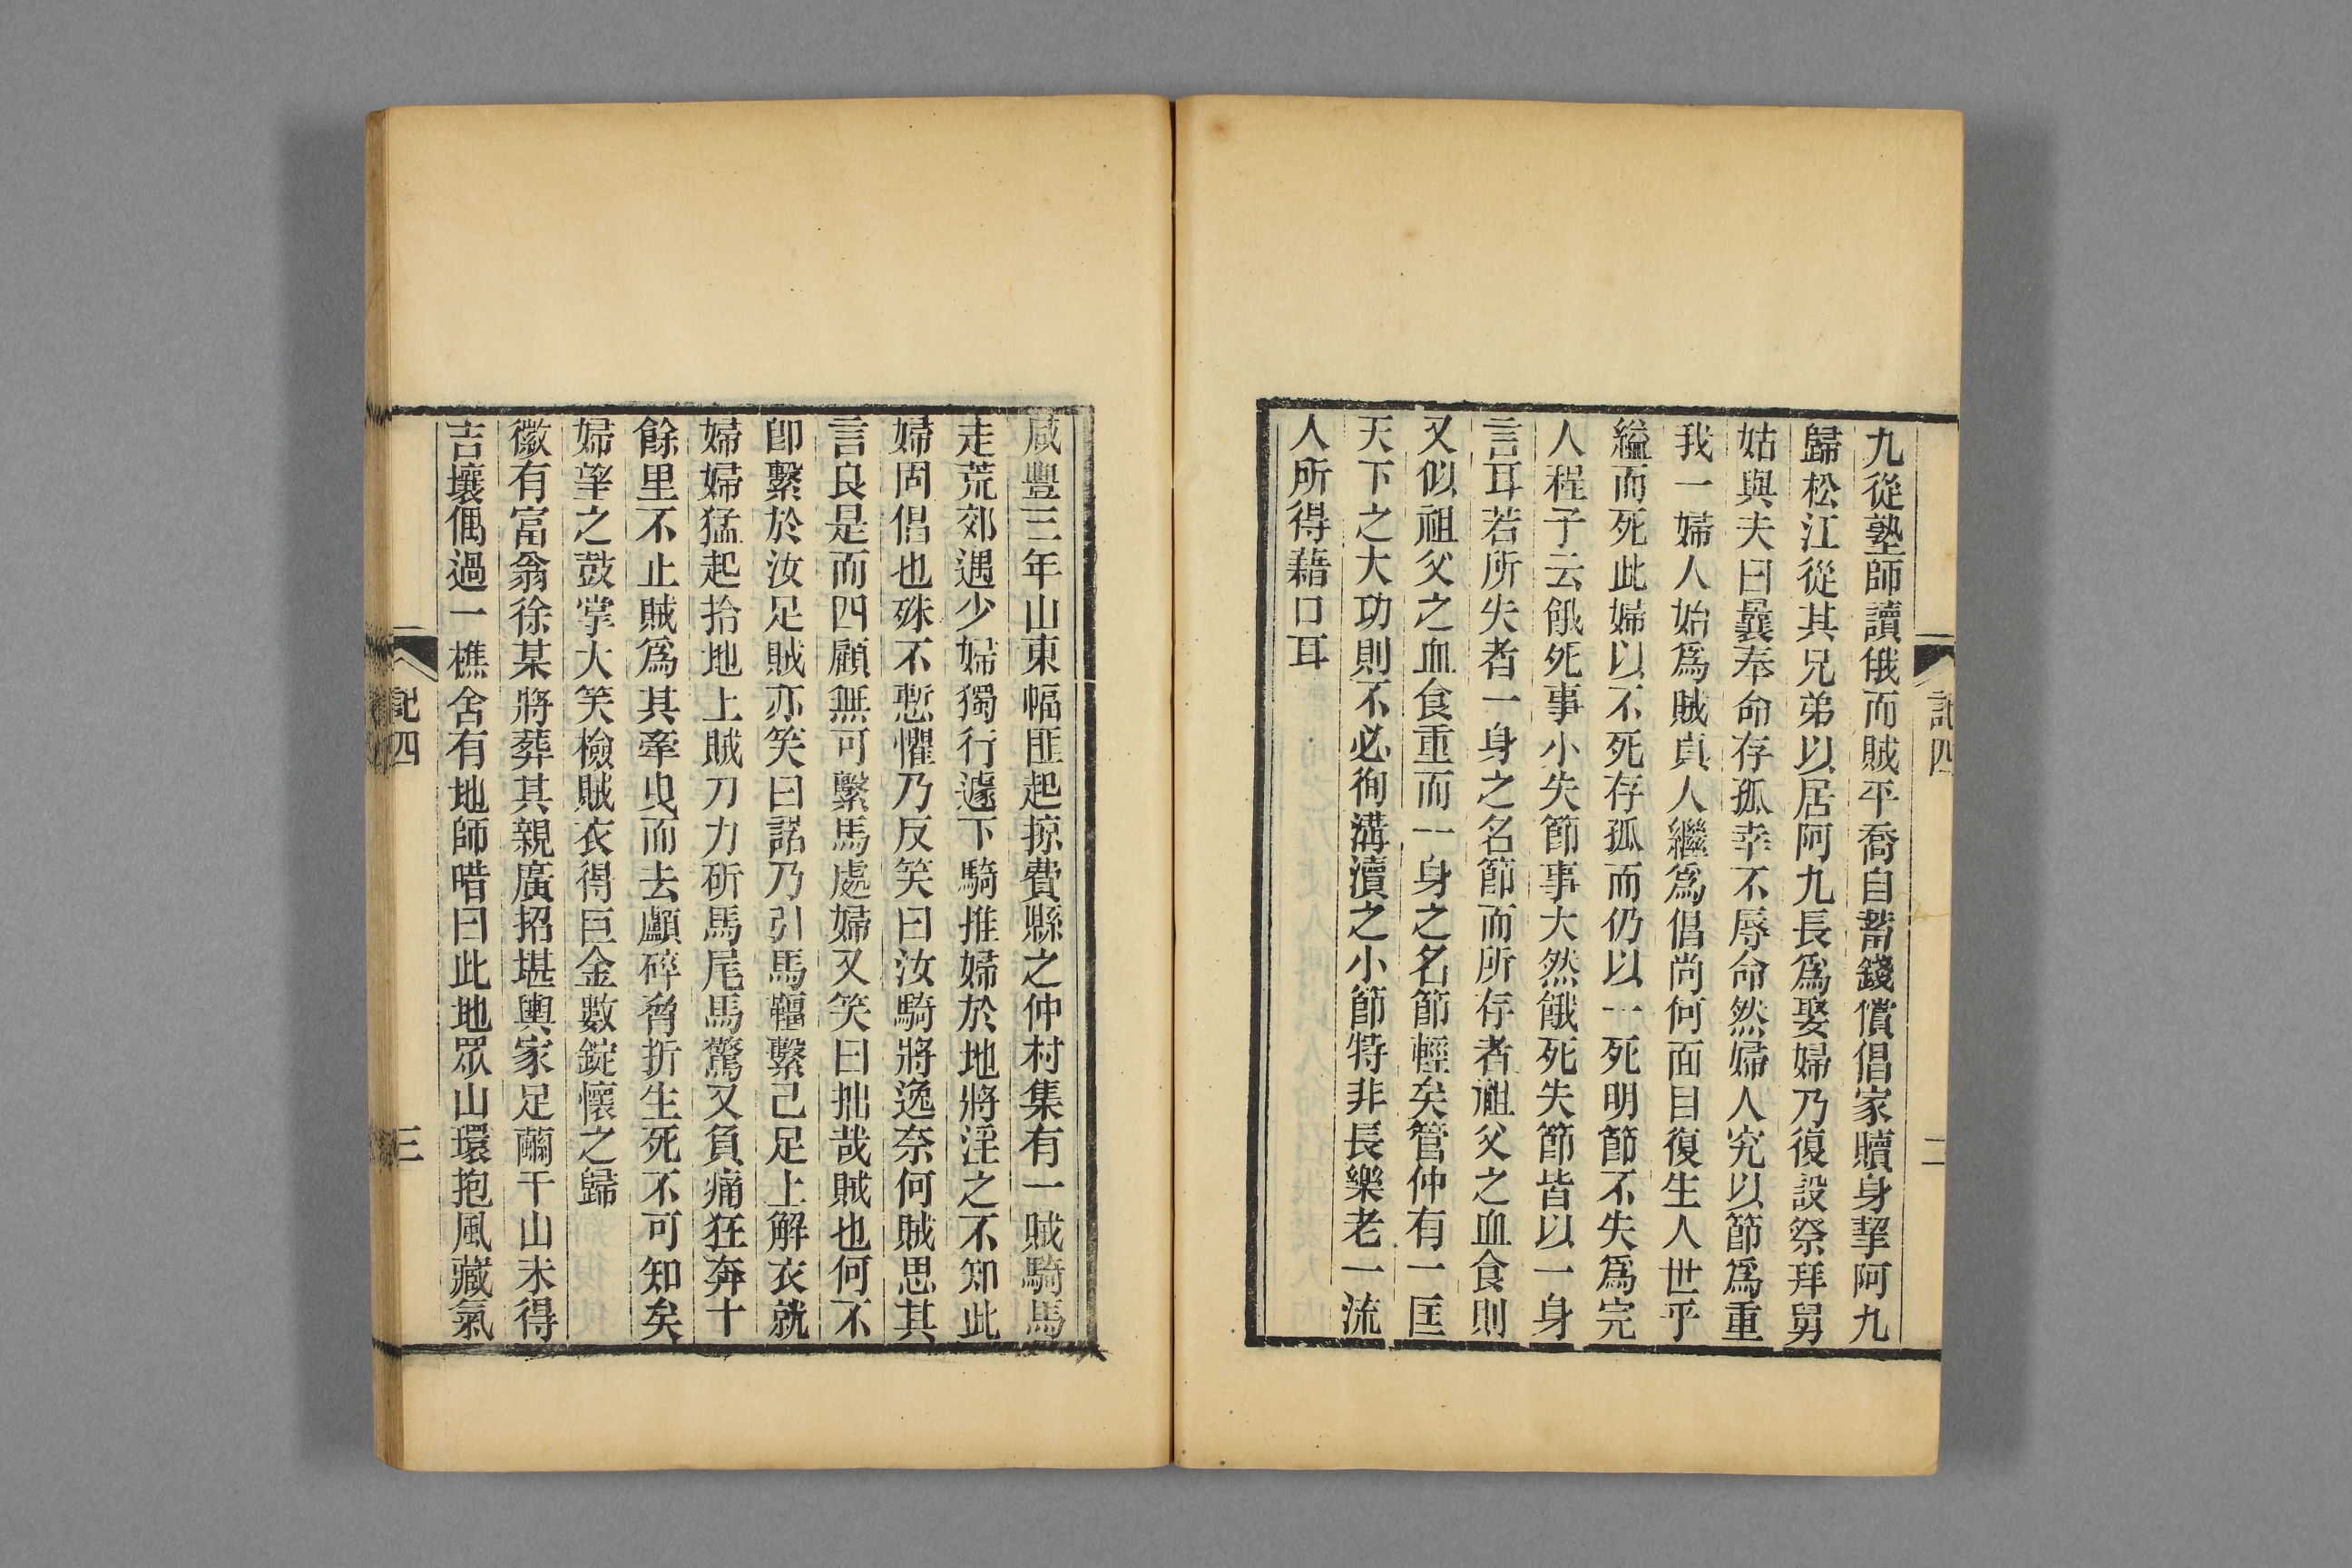 九從塾師讀俄而賊平喬自蓄錢償倡家贖身挈阿九
歸松江從其兄弟以居阿九長爲娶婦乃復設祭拜舅
姑與夫曰曩奉命存孤幸不辱命然婦人究以節爲重
我一婦人始爲賊貞人繼爲倡尚何面目復生人世乎
縊而死此婦以不死存孤而仍以一死明節不失爲完
人程子云餓死事小失節事大然餓死失節皆以一身
言耳若所失者一身之名節而所存者祖父之血食則
又似祖父之血食重而一身之名節輕矣管仲有一匡
天下之大功則不必徇溝瀆之小節特非長樂老一流
人所得藉口耳
記四
二
咸豐三年山東幅匪起掠費縣之仲村集有一賊騎馬
走荒郊遇少婦獨行遽下騎推婦於地將淫之不知此
婦固倡也殊不慙懼乃反笑曰汝騎將逸奈何賊思其
言良是而四顧無可繫馬處婦又笑曰拙哉賊也何不
卽繫於汝足賊亦笑曰諾乃引馬韁繫己足上解衣就
婦婦猛起拾地上賊刀力斫馬尾馬驚又負痛狂奔十
餘里不止賊爲其牽曳而去顱碎脅折生死不可知矣
婦望之鼓掌大笑檢賊衣得巨金數錠懷之歸
徽有富翁徐某將葬其親廣招堪輿家足繭千山未得
吉壤偶過一樵舍有地師唶曰此地眾山環抱風藏氣
記四
三